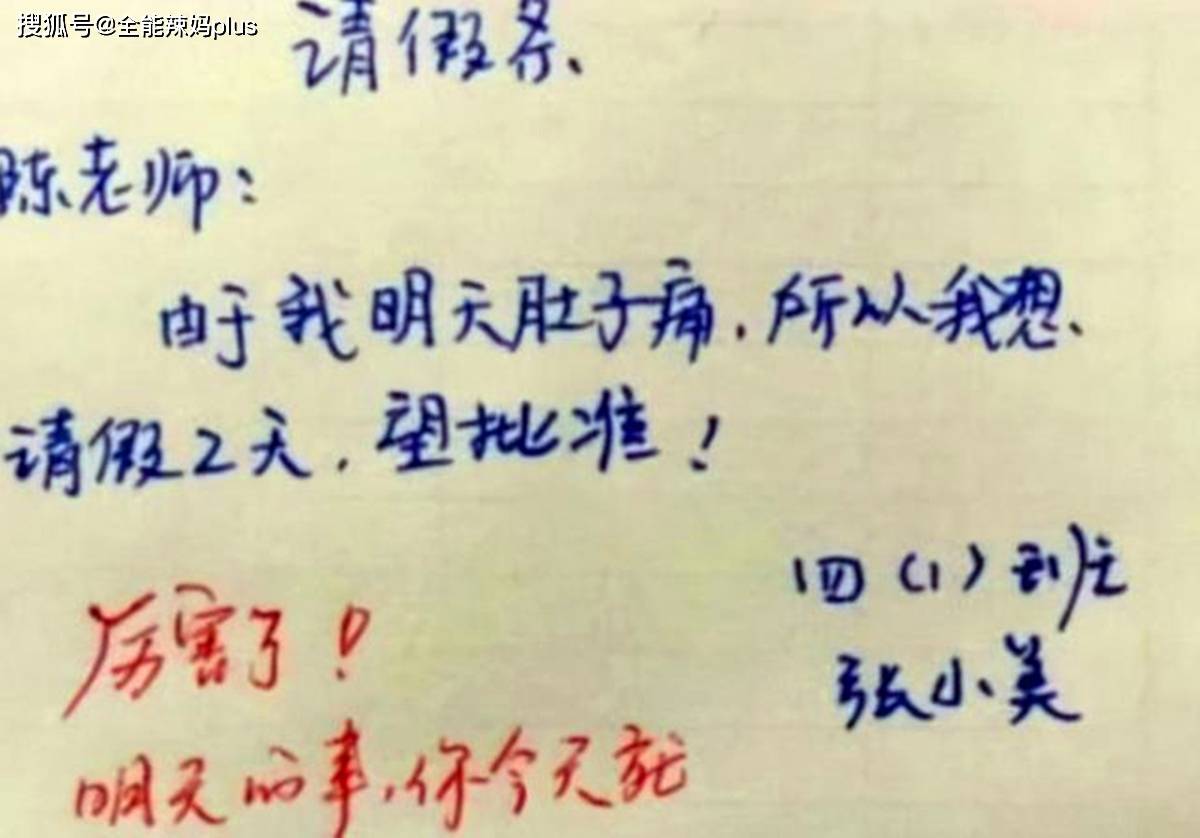 搜狐号@全能辣妈plus
请假条
陈老师：
由于我明天肚子痛，所以我想
请假2天，望批准！
四（1）班
张小美
厉害了！
明天的事，你今天就